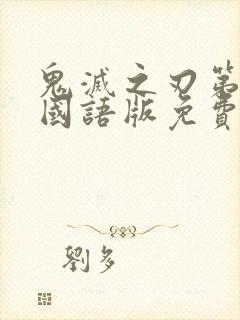 鬼滅之刃第
國語版免費
劉多